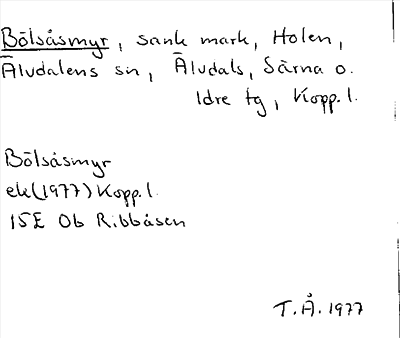 Bölsåsmyr, sank mark, Holen,
Älvdalens sn, Älvdals, Särna o.
Idre tg, Kopp. l.
Bölsåsmyr
ek (1977) Kopp. l.
15E 0b Ribbåsen
T.Å. 1977